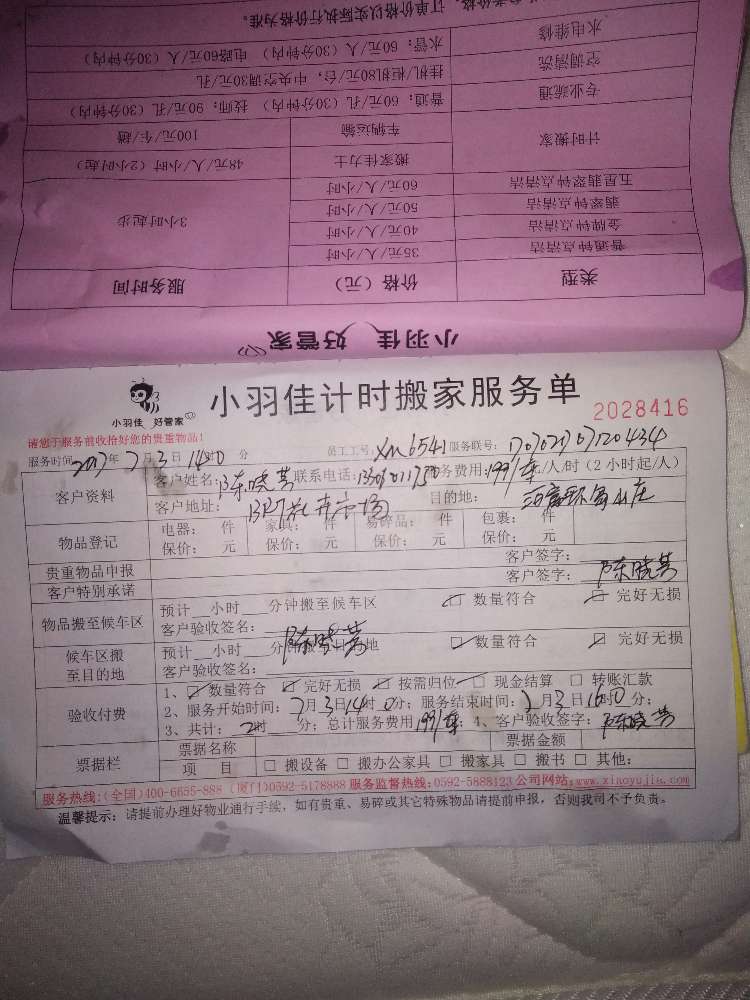 小羽佳 好管家
类型 价格（元） 服务时间
普通钟点清洁 35元/人/小时 3小时起步
金牌钟点清洁 40元/人/小时
翡翠钟点清洁 50元/人/小时
五星翡翠钟点清洁 60元/人/小时
计时搬家 搬家佳力士 48元/人/小时（2小时起）
车辆运输 100元/车/趟
专业疏通 普通：60元/孔（30分钟内） 技师：90元/孔（30分钟内）
空调清洗 挂机/柜机80元/台，中央空调30元/孔
水电维修 水管：60元/人（30分钟内） 电路60元/人（30分钟内）
订单价格以实际执行价格为准。
小羽佳 好管家
小羽佳计时搬家服务单
2028416
请您于服务前收拾好您的贵重物品！
服务时间 2017年 7月3日 14时0分 员工工号: XM6541 服务联号:
客户资料 客户姓名: 陈晓芸 联系电话: 服务费用: 199/车 元/人/时（2小时起/人）
客户地址: 目的地:
物品登记 电器: 件 家具: 件 易碎品: 件 包裹: 件
保价: 元 保价: 元 保价: 元 保价: 元
贵重物品申报 客户签字:
客户特别承诺 客户签字: 陈晓芸
物品搬至候车区 预计__小时__分钟搬至候车区 数量符合 完好无损
客户验收签名: 陈晓芸
候车区搬至目的地 预计__小时__分钟搬至目的地 数量符合 完好无损
客户验收签名:
验收付费 1、数量符合 完好无损 按需归位 现金结算 转账汇款
2、服务开始时间: 7月3日14时0分; 服务结束时间: 7月3日16时0分;
3、共计: 2时__分; 总计服务费用 199/车 4、客户验收签字: 陈晓芸
票据栏 票据名称 票据金额
项 目 搬设备 搬办公家具 搬家具 搬书 其他:
服务热线:(全国)400-6655-888 (厦门)0592-5178888 服务监督热线:0592-5888123 公司网站:www.xiaoyujia.com
温馨提示: 请提前办理好物业通行手续，如有贵重、易碎或其它特殊物品请提前申报，否则我司不予负责。